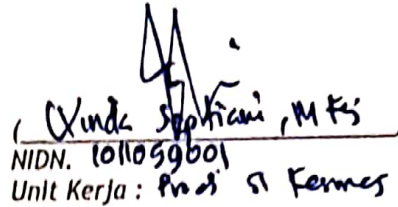 ( Winda Septiani, M Kes
NIDN. 1011059601
Unit Kerja : Prodi S1 Kesmas